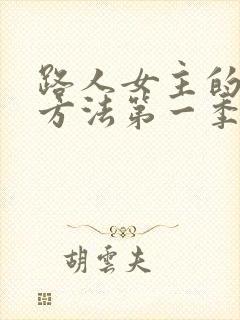 路人女主的
方法第一季
胡雲夫